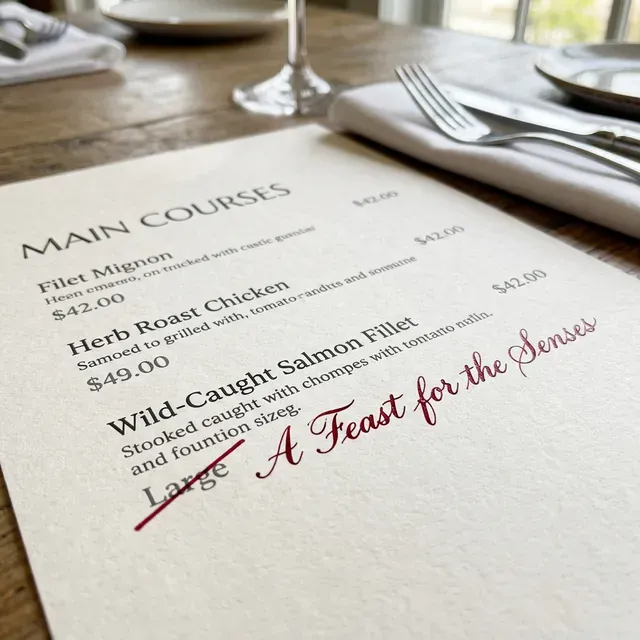 MAIN COURSES
Filet Mignon $42.00
on-tricked with
$42.00
Herb Roast Chicken $42.00
Samoed to grilled with, and
$49.00
Wild-Caught Salmon Fillet $42.00
Stooked caught with chompes with tontano
and fountion sizeg.
Large A Feast for the Senses